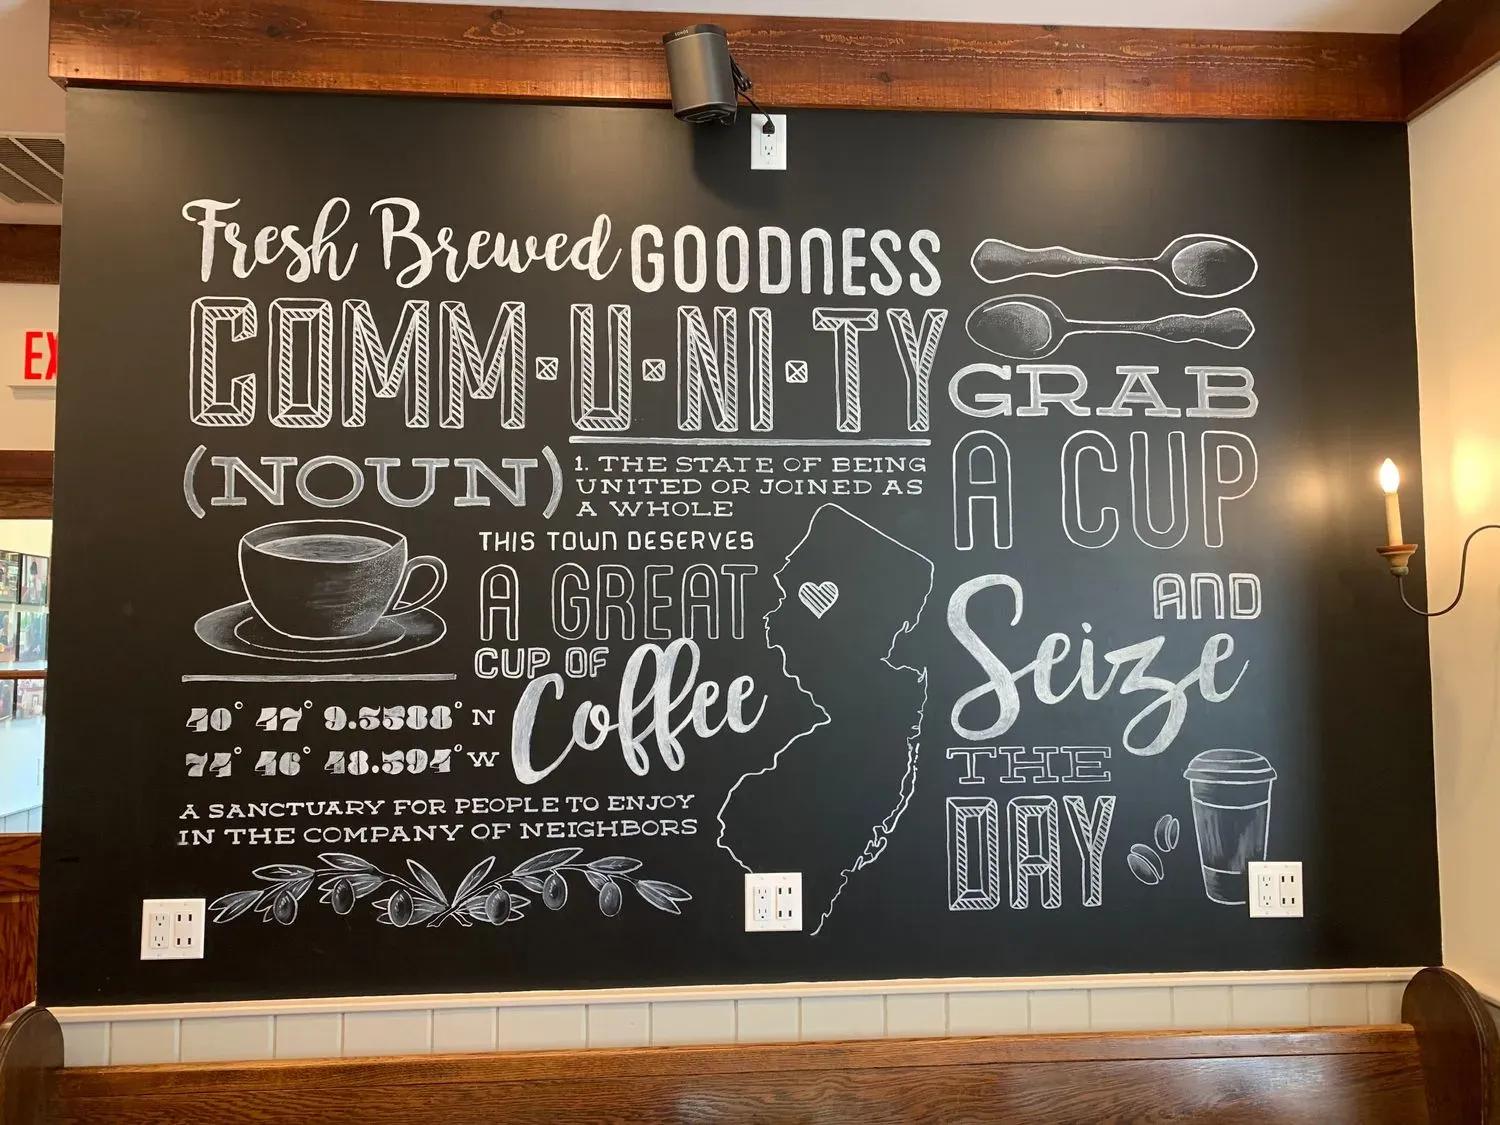 SONOS
EX
Fresh Brewed GOODNESS
COMM·U·NI·TY
(NOUN)
1. THE STATE OF BEING
UNITED OR JOINED AS
A WHOLE
THIS TOWN DESERVES
A GREAT
CUP OF
Coffee
40° 47° 9.5588° N
74° 46° 48.594° W
A SANCTUARY FOR PEOPLE TO ENJOY
IN THE COMPANY OF NEIGHBORS
GRAB
A CUP
AND
Seize
THE
DAY